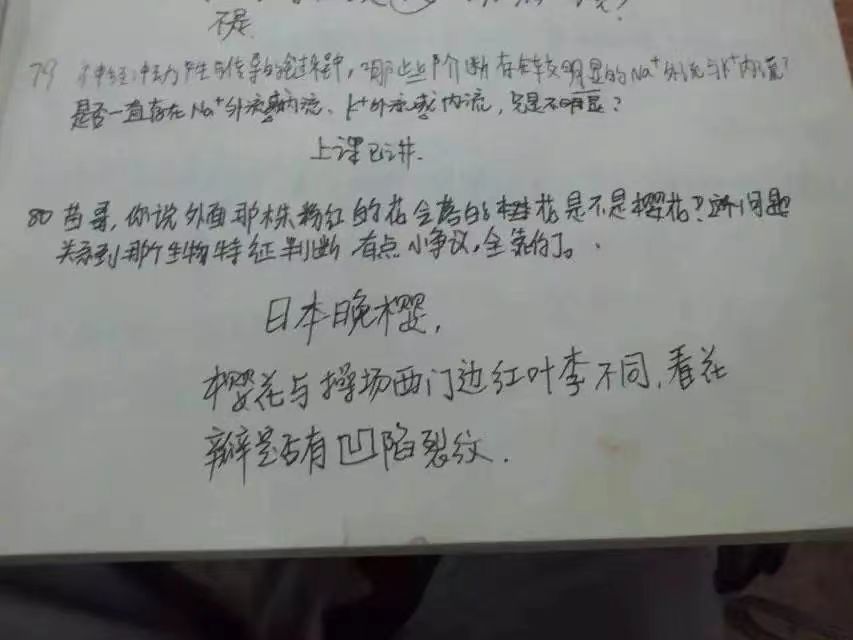 不是.
79 神经冲动产生与传导的过程中,哪些阶断存在较明显的Na⁺外流与K⁺内流?
是否一直存在Na⁺外流或内流、K⁺外流或内流,只是不明显?
上课已讲.
80 苗哥,你说外面那株粉红的花是不是樱花?这个问题
关系到那个生物特征判断 有点小争议,全靠你了。
日本晚樱,
樱花与操场西门边红叶李不同,看花
瓣是否有凹陷裂纹.